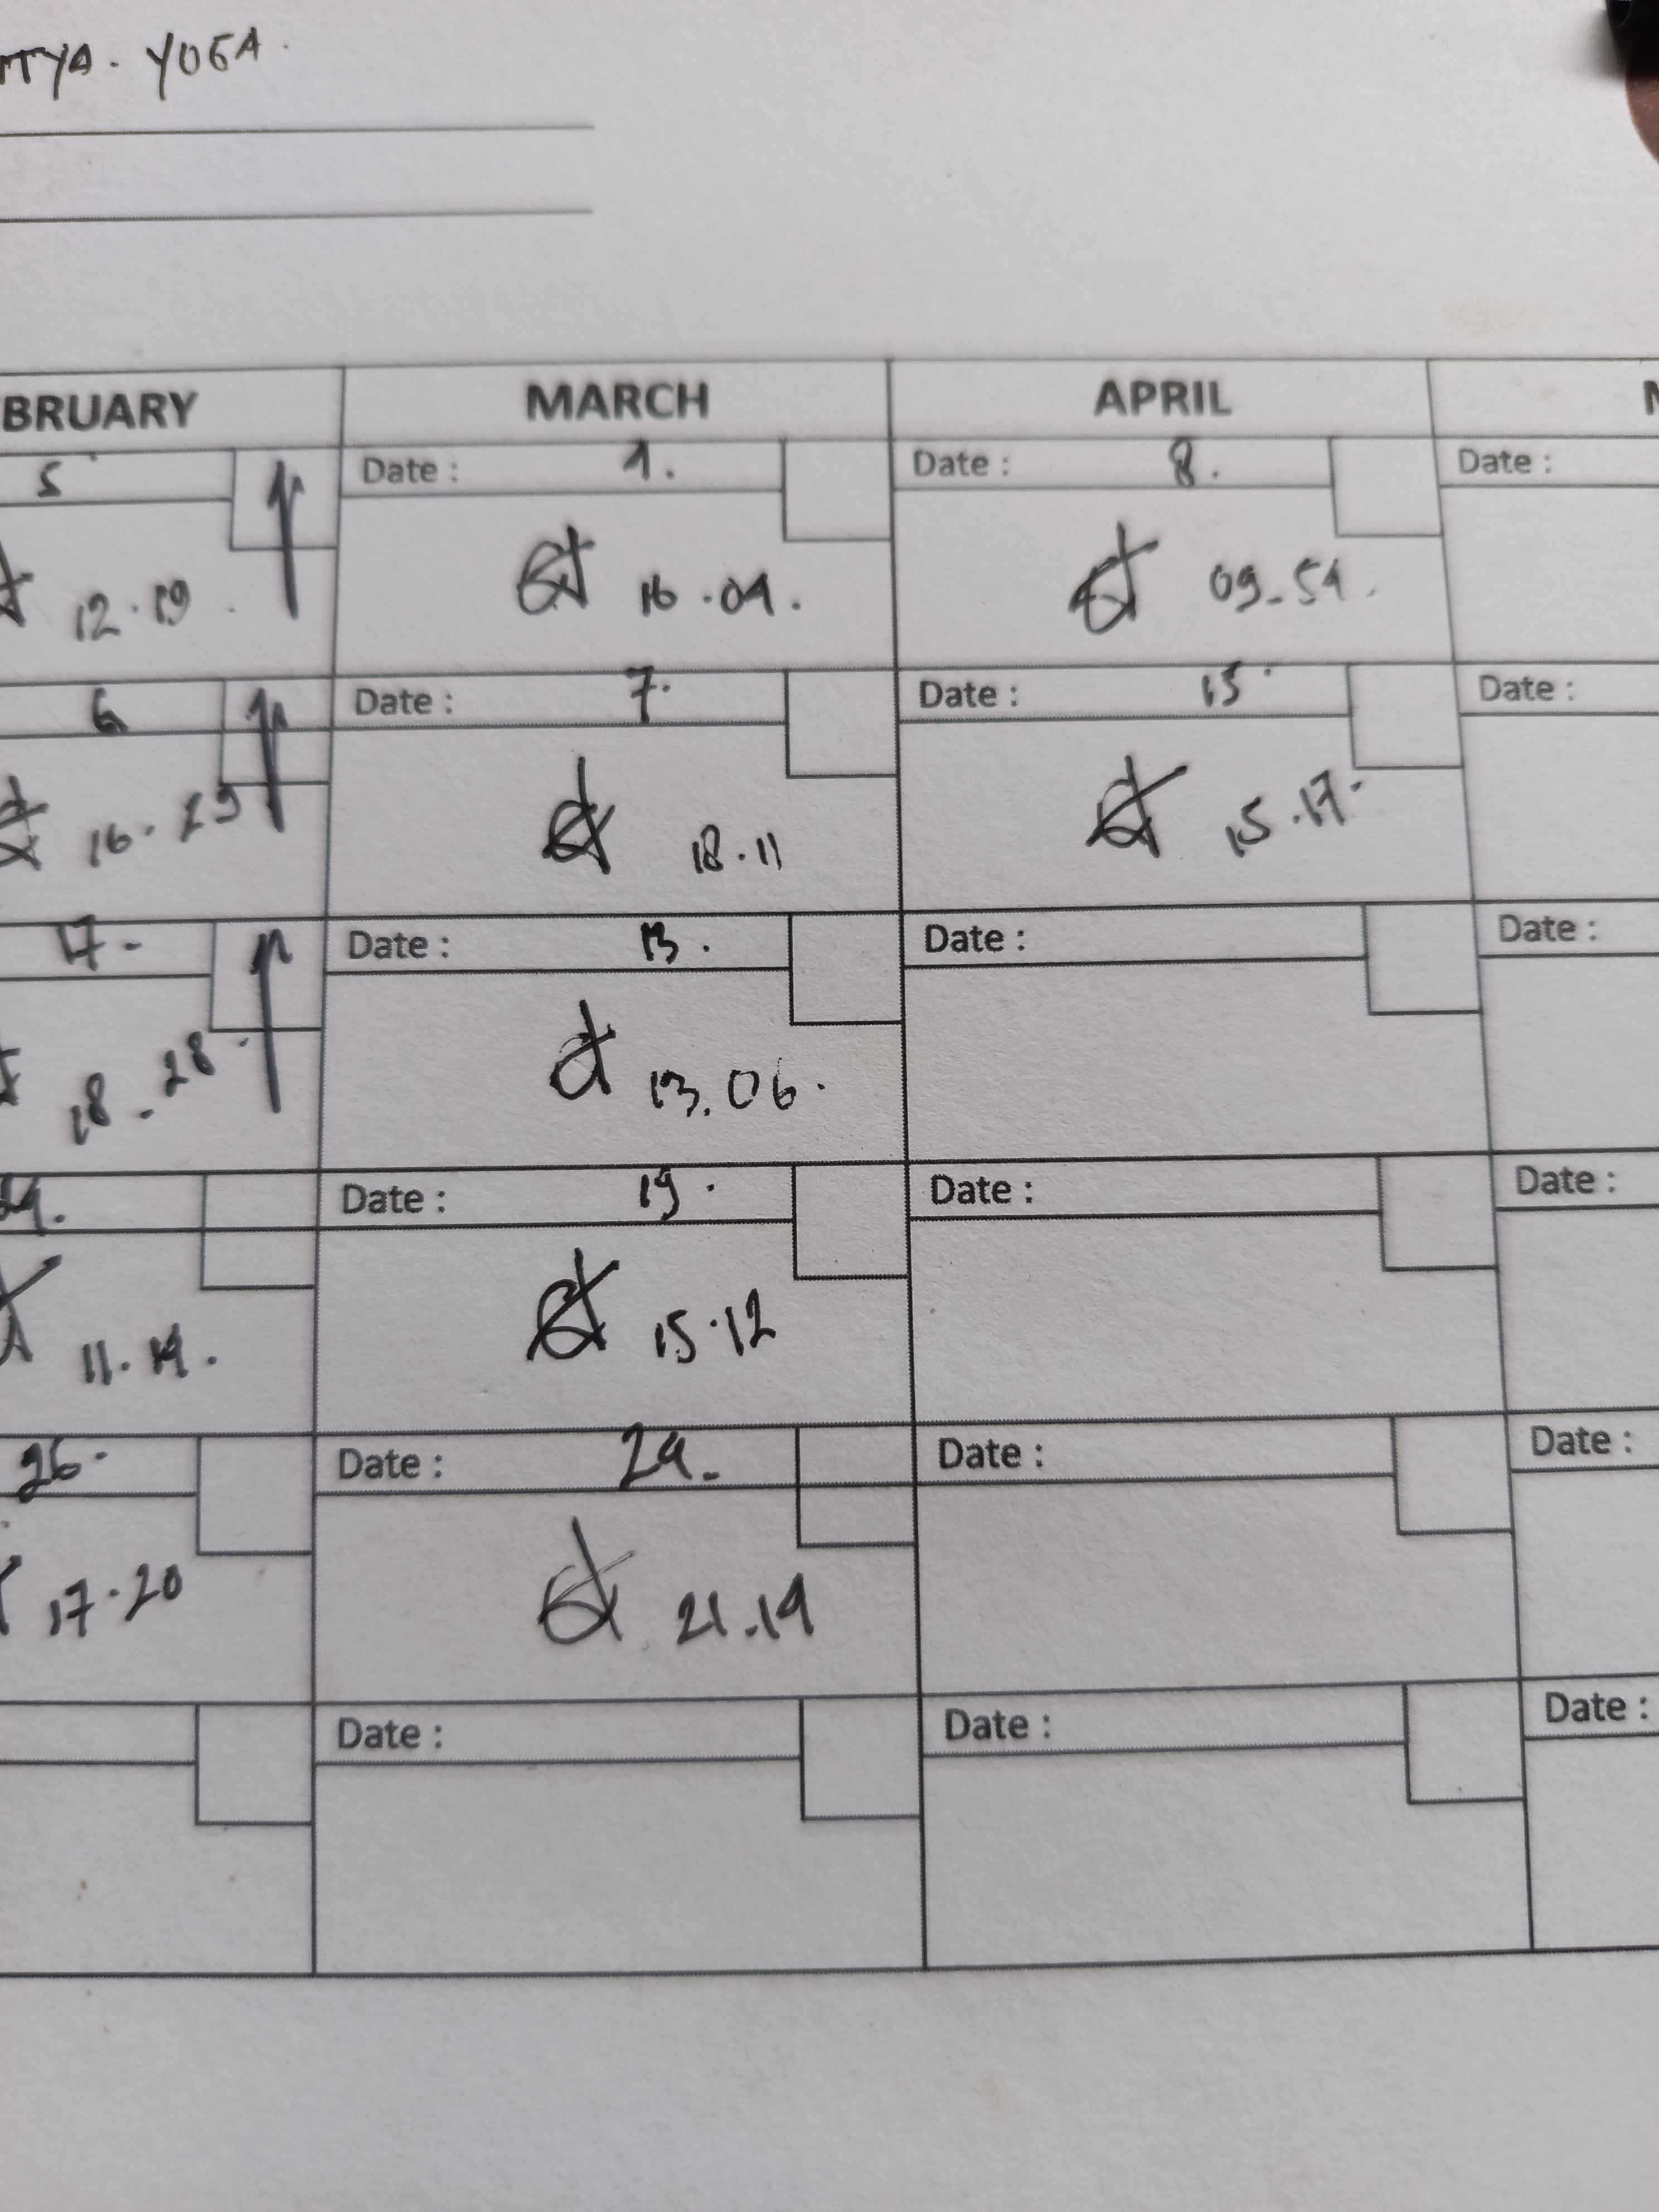 ITYA. YOGA.
BRUARY MARCH APRIL
5 Date : 1. Date : 8. Date :
12.19. 16.04. 09-54.
6 Date : 7. Date : 15. Date :
16.23 18.11 15.17.
17- Date : 13. Date : Date :
18-28. 13.06.
24. Date : 19. Date : Date :
11.14. 15.12
26. Date : 24- Date : Date :
17.20 21.14
Date : Date : Date :